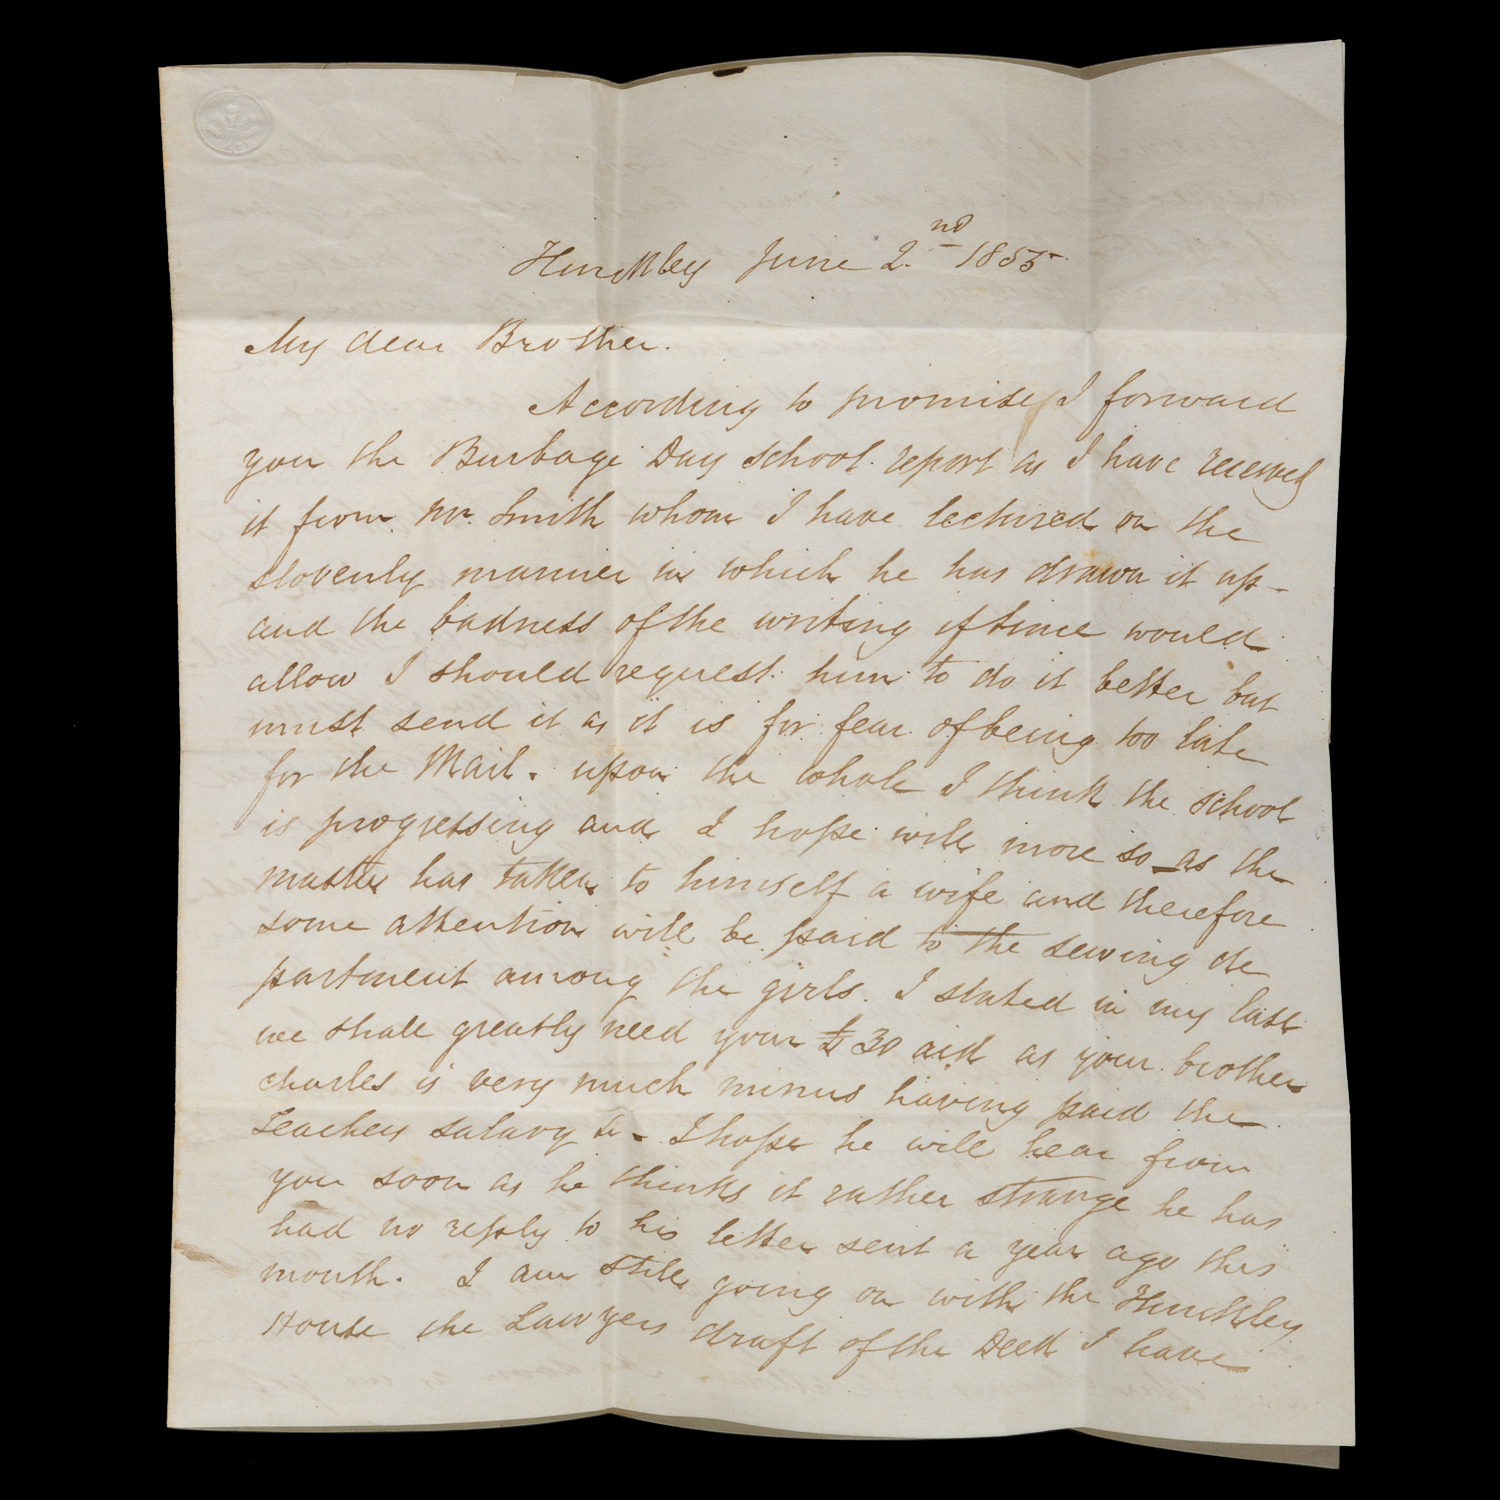 Hinckley June 2.nd 1855
My dear Brother.
According to promise I forward
you the Burbage Day school report as I have received
it from Mr. Smith whom I have lectured on the
slovenly manner in which he has drawn it up -
and the badness of the writing if time would
allow I should request him to do it better but
must send it as it is for fear of being too late
for the Mail. upon the whole I think the school
is progressing and I hope will more so as the
master has taken to himself a wife and therefore
some attention will be paid to the sewing de
partment among the girls. I stated in my last
we shall greatly need your £30 aid as your brother
Charles is very much minus having paid the
Teachers salary &c - I hope he will hear from
you soon as he thinks it rather strange he has
had no reply to his letter sent a year ago this
month. I am still going on with the Hinckley
House the Lawyers draft of the Deed I have